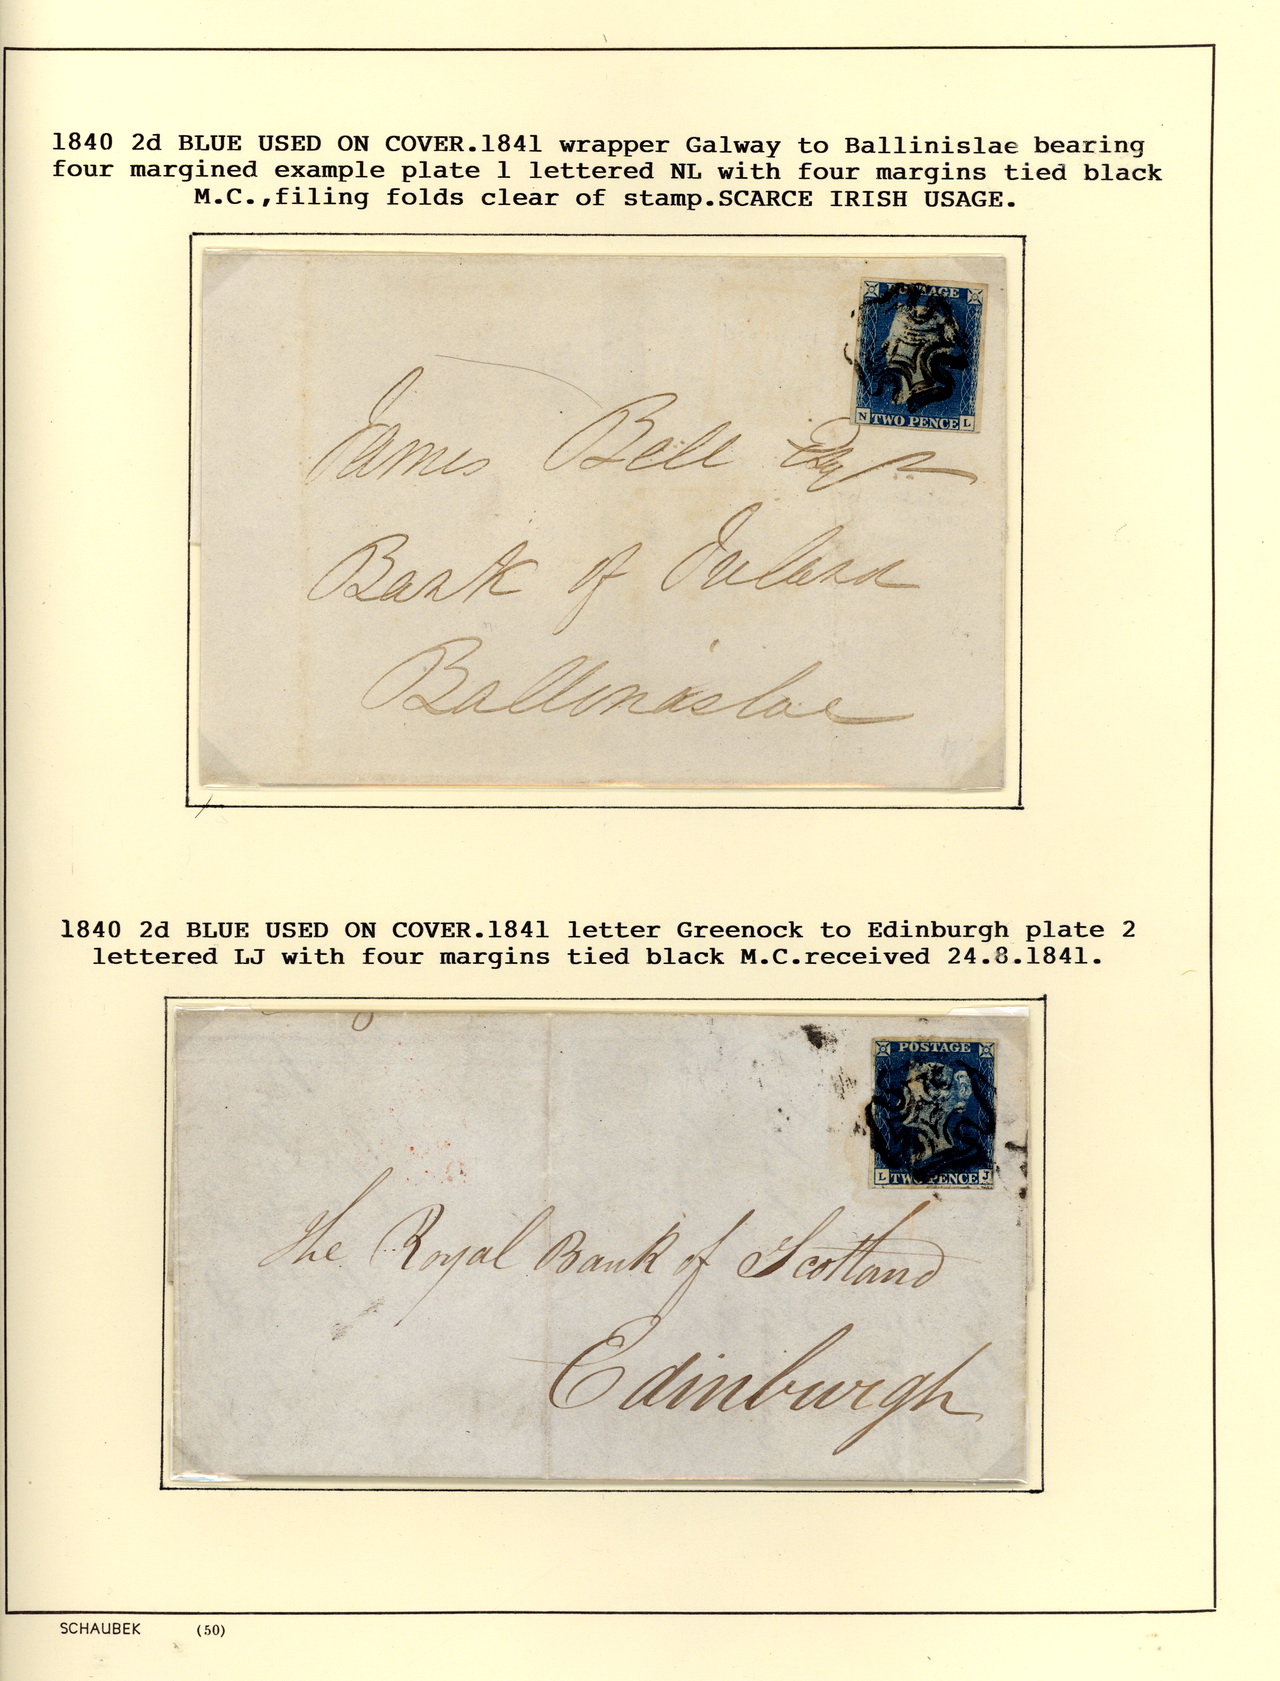 1840 2d BLUE USED ON COVER.1841 wrapper Galway to Ballinislae bearing
four margined example plate 1 lettered NL with four margins tied black
M.C.,filing folds clear of stamp.SCARCE IRISH USAGE.
POSTAGE
N TWO PENCE L
James Bell Esqr
Bank of Ireland
Ballinasloe
1840 2d BLUE USED ON COVER.1841 letter Greenock to Edinburgh plate 2
lettered LJ with four margins tied black M.C.received 24.8.1841.
POSTAGE
L TWO PENCE J
The Royal Bank of Scotland
Edinburgh
SCHAUBEK (50)